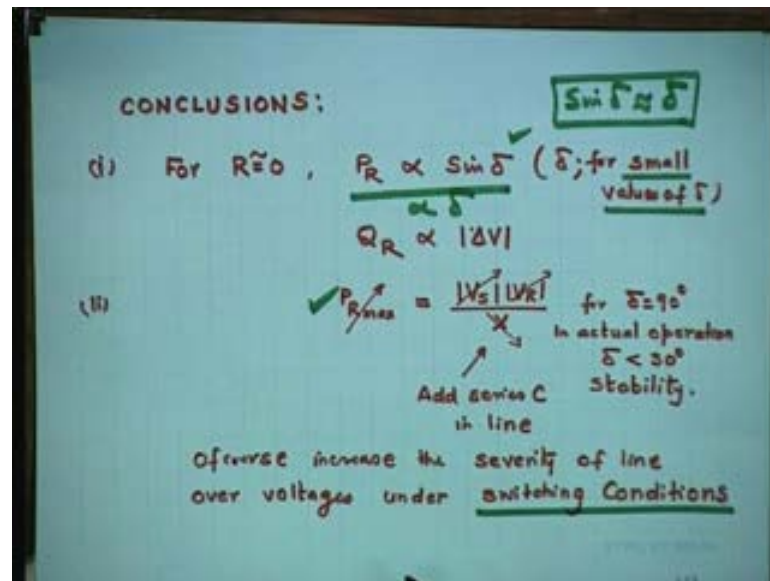 CONCLUSIONS:
Sin δ ≈ δ
(i) For R≅0, P_R ∝ Sin δ (δ; for small
value of δ)
∝ δ
Q_R ∝ |ΔV|
(ii) P_Rmax = |V_S| |V_R| / X for δ=90°
in actual operation
δ < 30°
Stability.
Add series C
in line
Ofcourse increase the severity of line
over voltages under switching Conditions